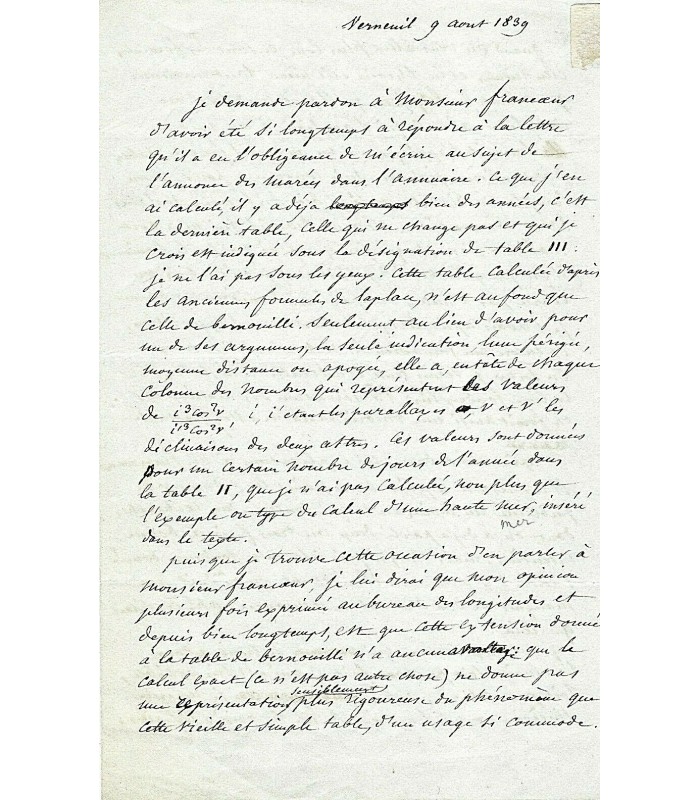 Verneuil 9 aout 1839
je demande pardon à Monsieur francœur
d'avoir été si longtemps à répondre à la lettre
qu'il a eu l'obligeance de m'écrire au sujet de
l'annonce des marées dans l'annuaire. Ce que j'en
ai calculé, il y a déja longtemps bien des années, c'est
la dernière table, celle qui ne change pas et qui je
crois est indiquée sous la désignation de table III :
je ne l'ai pas sous les yeux. Cette table calculée d'après
les anciennes formules, de laplace, n'est au fond que
celle de bernouilli. Seulement au lieu d'avoir pour
un de ses argumens, la seule indication, lune périgée,
moyenne distance ou apogée, elle a, en tête de chaque
colonne des nombres qui représentent les valeurs
de i³cos²v / i'³cos²v' i, i' étant les parallaxes, v et v' les
déclinaisons des deux astres. Ces valeurs sont données
pour un certain nombre de jours de l'année dans
la table II, que je n'ai pas calculée, non plus que
l'exemple ou type du calcul d'une haute mer, inséré
mer
dans le texte.
puisque je trouve cette occasion d'en parler à
Monsieur francœur, je lui dirai que mon opinion
plusieurs fois exprimée au bureau des longitudes et
depuis bien longtemps, est que cette extension donnée
à la table de bernouilli n'a aucun avantage : que le
calcul exact (ce n'est pas autre chose) ne donne pas
sensiblement
une représentation plus rigoureuse du phénomène que
cette vieille et simple table, d'un usage si commode.